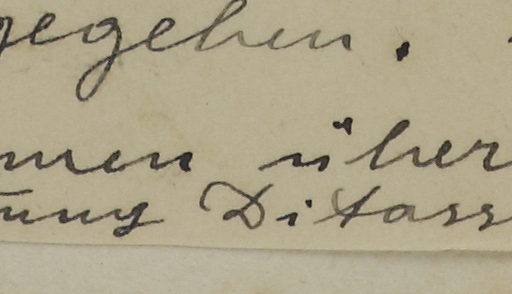 gegeben.
men über
nung Ditass